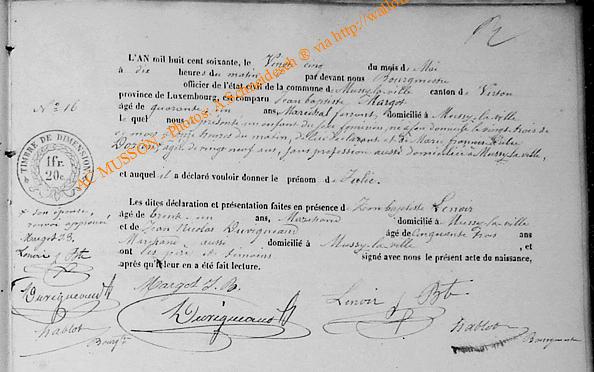 L'AN mil huit cent soixante, le Vingt cinq du mois de Mai
à dix heures du matin par devant nous Bourgmestre
officier de l'état civil de la commune de Mussy-la-ville canton de Virton
province de Luxembourg, est comparu Jean baptiste Margot
âgé de quarante un ans, Maréchal ferrant, domicilié à Mussy-la-ville
lequel nous a présenté un enfant du sexe féminin né en son domicile le vingt trois de
ce mois, heures du matin, de lui déclarant et de Marie
agée de vingt neuf ans, sans profession aussi domiciliée à Mussy-la-ville,
et auquel il a déclaré vouloir donner le prénom de Julie.
Les dites déclaration et présentation faites en présence de Jean baptiste Lenoir
âgé de trente un ans, Marchand domicilié à Mussy-la-ville
et de Jean Nicolas Duvigneaud âgé de Cinquante trois ans
Marchand aussi domicilié à Mussy-la-ville , et
ont les père et témoins signé avec nous le présent acte du naissance,
après qu'lecture en a été fait lecture.
Margot J. B.
Duvigneaud
Lenoir J Bte
hablot
Bourgmestre
N° 16
TIMBRE DE DIMENSION
1fr.
20c.
x son épouse,
renvoi approuvé
Margot J B.
Lenoir J Bte
Duvigneaud
hablot
Bourgt
AL MUSSON - Photos: A.Schneidesch ® via http://wallo